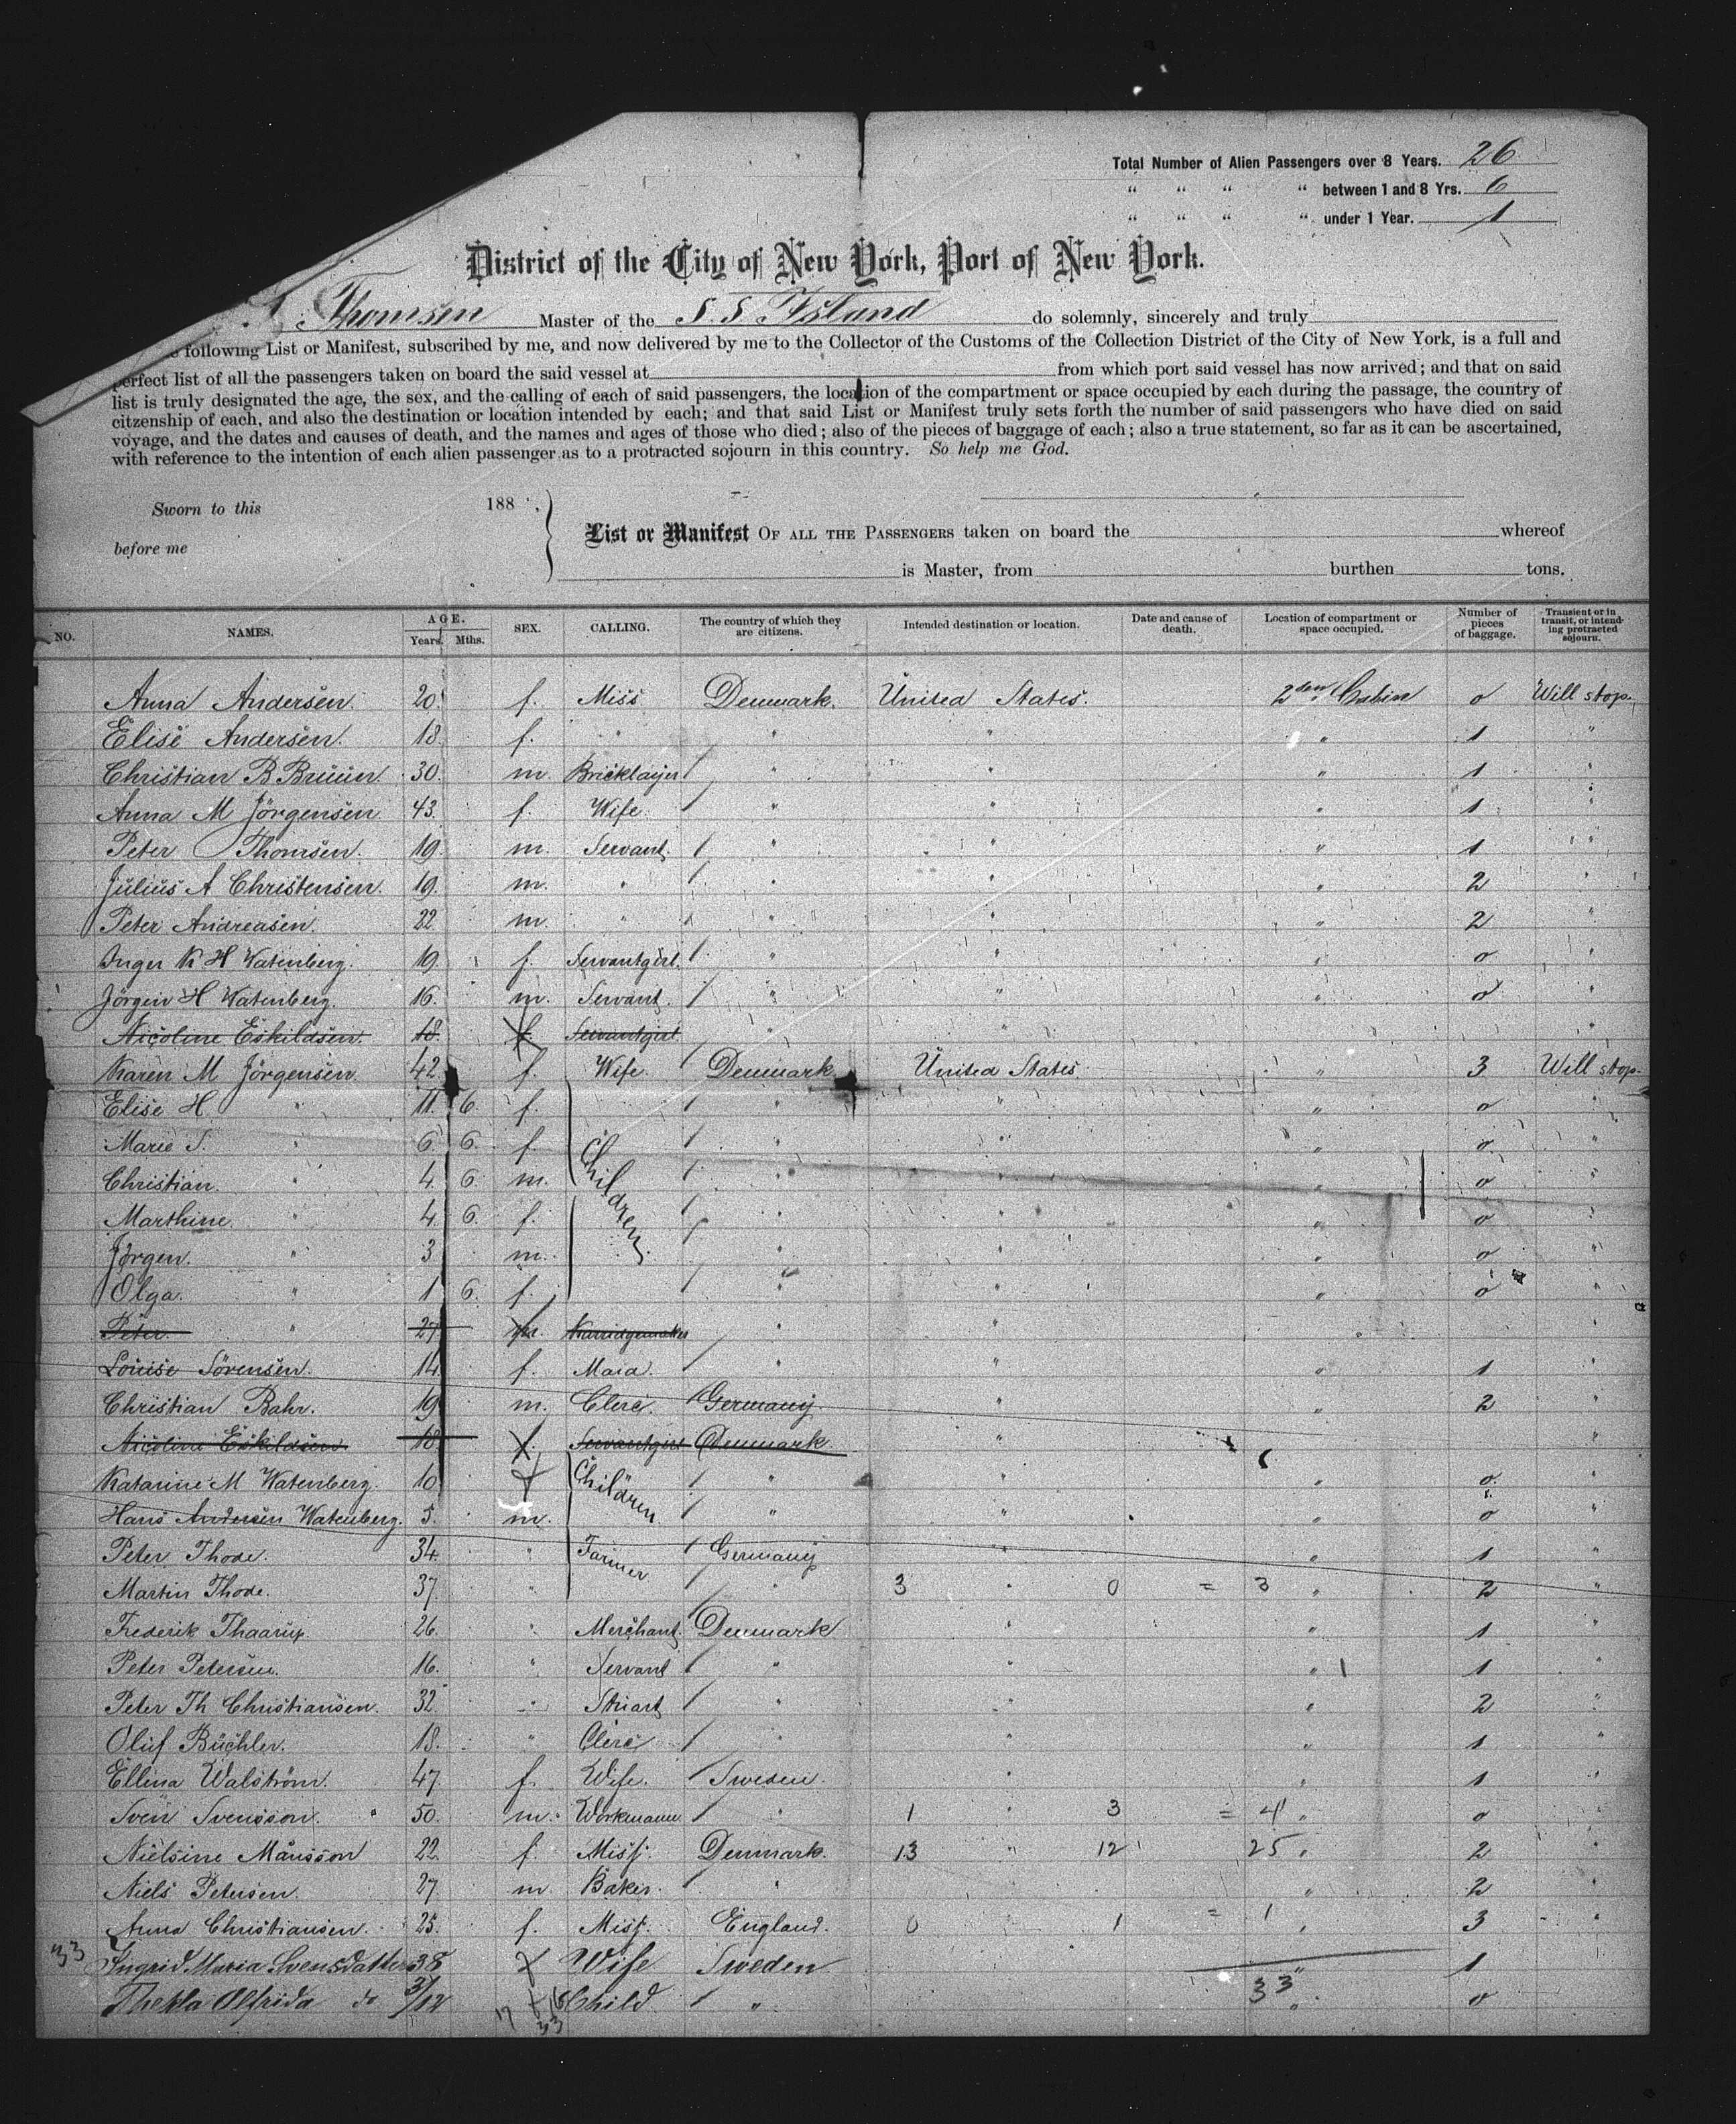 Total Number of Alien Passengers over 8 Years. 26
“ “ “ “ between 1 and 8 Yrs. 6
“ “ “ “ under 1 Year. 1
District of the City of New York, Port of New York.
Thomsen Master of the S. S Island do solemnly, sincerely and truly
following List or Manifest, subscribed by me, and now delivered by me to the Collector of the Customs of the Collection District of the City of New York, is a full and
perfect list of all the passengers taken on board the said vessel at from which port said vessel has now arrived; and that on said
list is truly designated the age, the sex, and the calling of each of said passengers, the location of the compartment or space occupied by each during the passage, the country of
citzenship of each, and also the destination or location intended by each; and that said List or Manifest truly sets forth the number of said passengers who have died on said
voyage, and the dates and causes of death, and the names and ages of those who died; also of the pieces of baggage of each; also a true statement, so far as it can be ascertained,
with reference to the intention of each alien passenger as to a protracted sojourn in this country. So help me God.
Sworn to this 188 .
before me
List or Manifest OF ALL THE PASSENGERS taken on board the whereof
is Master, from burthen tons.
NO. NAMES. AGE. Years. Mths. SEX. CALLING. The country of which they are citizens. Intended destination or location. Date and cause of death. Location of compartment or space occupied. Number of pieces of baggage. Transient or in transit, or intending protracted sojourn.
Anna Andersen. 20. f. Miss Denmark. United States. 2den Cabin 0 Will stop.
Elise Andersen. 18. f. " " " " 1 "
Christian B Bruun. 30. m. Bricklayer " " " 1 "
Anna M Jörgensen 43. f. Wife. " " " 1 "
Peter Thomsen. 19. m. Servant. " " " 1 "
Julius A Christensen. 19. m. " " " " 2 "
Peter Andreasen. 22 m. " " " " 2 "
Inger K H Watenberg. 19. f. Servantgirl. " " " 0 "
Jörgen H Watenberg. 16. m. Servant. " " " 0 "
Nicoline Eskildsen. 18. f. Servantgirl " " " "
Karen M Jörgensen. 42. f. Wife. Denmark United States " 3 Will stop.
Elise H " 11. 6. f. Children " " " 0 "
Marie S. " 6. 6. f. " " " 0 "
Christian. " 4. 6. m. " " " 0 "
Marthine. " 4. 6. f. " " " 0 "
Jörgen. " 3 m. " " " 0 "
Olga. " 1 6. f. " " " 0 "
Peter. " 27 m. " " " "
Louise Sörensen. 14. f. " " " 1 "
Christian Bahr. 19 m. Clerc. Germany " " 2 "
Nicoline Eskildsen 18. f. Servantgirl Denmark " " "
Katarine M Watenberg. 10 f Children " " " 0. "
Hans Andersen Watenberg. 5. m. " " " 0 "
Peter Thode. 34. " Farmer Germany " " 1 "
Martin Thode. 37. " " 3 " 0 = 3 " 2 "
Frederik Thaarup. 26. " Merchant. Denmark " " 1 "
Peter Petersen. 16. " Servant " " " 1 1 "
Peter Th Christiansen. 32 " Stuart " " " 2 "
Oluf Büchler. 18. " Clerc " " " 1 "
Ellina Walström. 47. f. Wife. Sweden. " " 1 "
Sven Svensson. " 50. m. Workmann " 1 " 3 = 4 " 0 "
Nielsine Månsson 22. f. Miss. Denmark. 13 " 12 25 " 2 "
Niels Petersen. 27. m. Baker. " " 2 "
Anna Christiansen. 25. f. Miss. England. 0 1 = 1 " 3 "
33 Ingrid Maria Svensdatter 38 f Wife Sweden " 1
Thekla Alfrida do 3/12 f Child " 33 " 0
17 16
33